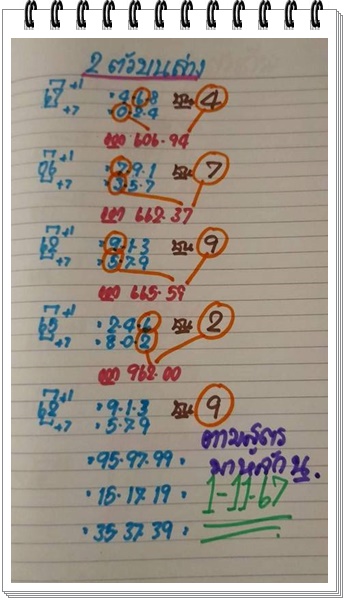 2 ตัวบนล่าง
+1 ·4·6·8 รูด 4
+7 ·0·2·4
ออก 606·94
+1 ·7·9·1 รูด 7
+7 ·3·5·7
ออก 662·37
+1 ·9·1·3 รูด 9
+7 ·5·7·9
ออก 665·59
65 +1 ·2·4·6 รูด 2
+7 ·8·0·2
ออก 962·00
+1 ·9·1·3 รูด 9
+7 ·5·7·9
·95·97·99·
ตามสูตร
·15·17·19·
1-11-67
·35·37·39·